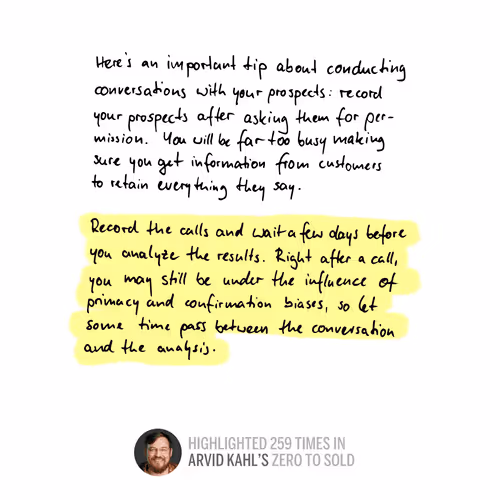 Here's an important tip about conducting
conversations with your prospects: record
your prospects after asking them for per-
mission. You will be far too busy making
sure you get information from customers
to retain everything they say.
Record the calls and wait a few days before
you analyze the results. Right after a call,
you may still be under the influence of
primacy and confirmation biases, so let
some time pass between the conversation
and the analysis.
HIGHLIGHTED 259 TIMES IN
ARVID KAHL'S ZERO TO SOLD